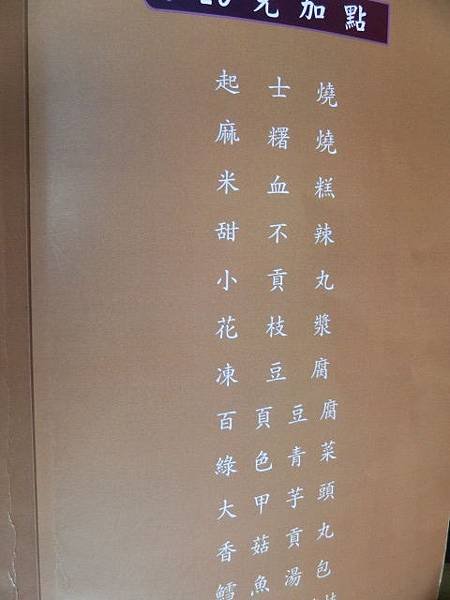 元加點
起士燒
麻糬燒
米血糕
甜不辣
小貢丸
花枝漿
凍豆腐
百頁豆腐
綠色青菜
大甲芋頭
香菇貢丸
鱈魚湯包